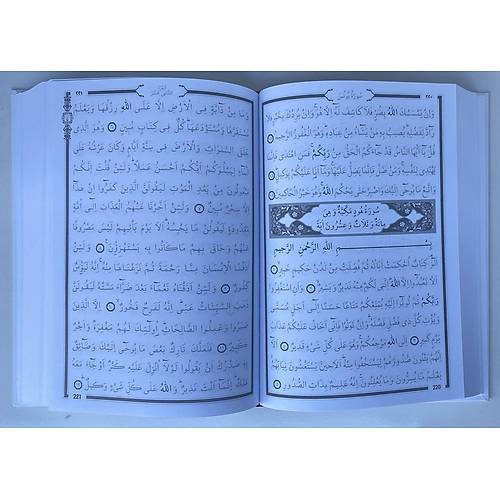 ٢٢٠
سُورَةُ يُونُسَ
وَاِنْ يَمْسَسْكَ اللّٰهُ بِضُرٍّ فَلَا كَاشِفَ لَهُ اِلَّا هُوَ وَاِنْ يُرِدْكَ بِخَيْرٍ فَلَا
رَادَّ لِفَضْلِهِ يُصِيبُ بِهِ مَنْ يَشَاءُ مِنْ عِبَادِهِ وَهُوَ الْغَفُورُ الرَّحِيمُ
قُلْ يَا اَيُّهَا النَّاسُ قَدْ جَاءَكُمُ الْحَقُّ مِنْ رَبِّكُمْ فَمَنِ اهْتَدٰى فَاِنَّمَا
يَهْتَدِي لِنَفْسِهِ وَمَنْ ضَلَّ فَاِنَّمَا يَضِلُّ عَلَيْهَا وَمَا اَنَا عَلَيْكُمْ بِوَكِيلٍ
وَاتَّبِعْ مَا يُوحٰى اِلَيْكَ وَاصْبِرْ حَتّٰى يَحْكُمَ اللّٰهُ وَهُوَ خَيْرُ الْحَاكِمِينَ
سُورَةُ هُودٍ مَكِّيَّةٌ وَهِيَ
مِائَةٌ وَثَلَاثٌ وَعِشْرُونَ اٰيَةً
بِسْمِ اللّٰهِ الرَّحْمٰنِ الرَّحِيمِ
الٓرٰ كِتَابٌ اُحْكِمَتْ اٰيَاتُهُ ثُمَّ فُصِّلَتْ مِنْ لَدُنْ حَكِيمٍ خَبِيرٍ
اَلَّا تَعْبُدُوا اِلَّا اللّٰهَ اِنَّنِي لَكُمْ مِنْهُ نَذِيرٌ وَبَشِيرٌ وَاَنِ اسْتَغْفِرُوا
رَبَّكُمْ ثُمَّ تُوبُوا اِلَيْهِ يُمَتِّعْكُمْ مَتَاعًا حَسَنًا اِلٰى اَجَلٍ مُسَمًّى
وَيُؤْتِ كُلَّ ذِي فَضْلٍ فَضْلَهُ وَاِنْ تَوَلَّوْا فَاِنِّي اَخَافُ عَلَيْكُمْ عَذَابَ
يَوْمٍ كَبِيرٍ اِلَى اللّٰهِ مَرْجِعُكُمْ وَهُوَ عَلٰى كُلِّ شَيْءٍ قَدِيرٌ اَلَا
اِنَّهُمْ يَثْنُونَ صُدُورَهُمْ لِيَسْتَخْفُوا مِنْهُ اَلَا حِينَ يَسْتَغْشُونَ ثِيَابَهُمْ
يَعْلَمُ مَا يُسِرُّونَ وَمَا يُعْلِنُونَ اِنَّهُ عَلِيمٌ بِذَاتِ الصُّدُورِ
220
٢٢١
وَمَا مِنْ دَابَّةٍ فِي الْاَرْضِ اِلَّا عَلَى اللّٰهِ رِزْقُهَا وَيَعْلَمُ
مُسْتَقَرَّهَا وَمُسْتَوْدَعَهَا كُلٌّ فِي كِتَابٍ مُبِينٍ وَهُوَ الَّذِي
خَلَقَ السَّمٰوَاتِ وَالْاَرْضَ فِي سِتَّةِ اَيَّامٍ وَكَانَ عَرْشُهُ عَلَى
الْمَاءِ لِيَبْلُوَكُمْ اَيُّكُمْ اَحْسَنُ عَمَلًا وَلَئِنْ قُلْتَ اِنَّكُمْ
مَبْعُوثُونَ مِنْ بَعْدِ الْمَوْتِ لَيَقُولَنَّ الَّذِينَ كَفَرُوا اِنْ هٰذَا
اِلَّا سِحْرٌ مُبِينٌ وَلَئِنْ اَخَّرْنَا عَنْهُمُ الْعَذَابَ اِلٰى اُمَّةٍ
مَعْدُودَةٍ لَيَقُولُنَّ مَا يَحْبِسُهُ اَلَا يَوْمَ يَأْتِيهِمْ لَيْسَ مَصْرُوفًا
عَنْهُمْ وَحَاقَ بِهِمْ مَا كَانُوا بِهِ يَسْتَهْزِؤُنَ وَلَئِنْ
اَذَقْنَا الْاِنْسَانَ مِنَّا رَحْمَةً ثُمَّ نَزَعْنَاهَا مِنْهُ اِنَّهُ لَيَؤُسٌ
كَفُورٌ وَلَئِنْ اَذَقْنَاهُ نَعْمَاءَ بَعْدَ ضَرَّاءَ مَسَّتْهُ لَيَقُولَنَّ
ذَهَبَ السَّيِّـَٔاتُ عَنِّي اِنَّهُ لَفَرِحٌ فَخُورٌ اِلَّا الَّذِينَ
صَبَرُوا وَعَمِلُوا الصَّالِحَاتِ اُولٰئِكَ لَهُمْ مَغْفِرَةٌ وَاَجْرٌ
كَبِيرٌ فَلَعَلَّكَ تَارِكٌ بَعْضَ مَا يُوحٰى اِلَيْكَ وَضَائِقٌ
بِهِ صَدْرُكَ اَنْ يَقُولُوا لَوْلَا اُنْزِلَ عَلَيْهِ كَنْزٌ اَوْ جَاءَ مَعَهُ
مَلَكٌ اِنَّمَا اَنْتَ نَذِيرٌ وَاللّٰهُ عَلٰى كُلِّ شَيْءٍ وَكِيلٌ
221